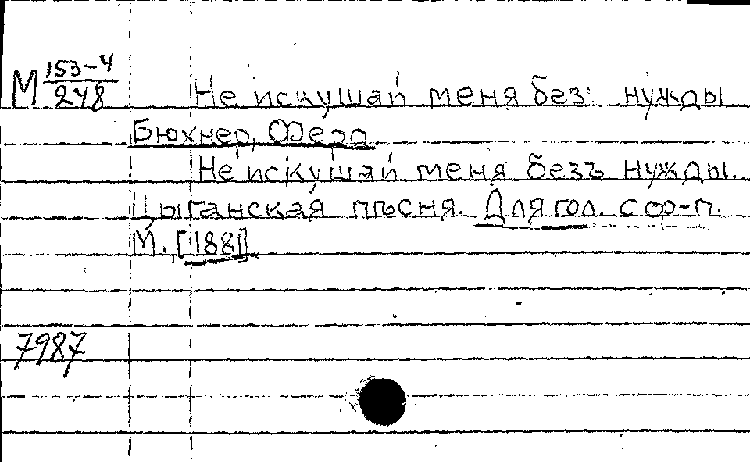 М 153-4/248 Не искушай меня без нужды
Бюхнер, Федо
Не искушай меня безъ нужды.
Цыганская пѣсня. Для гол. с ф-п.
М. [1881]
7987